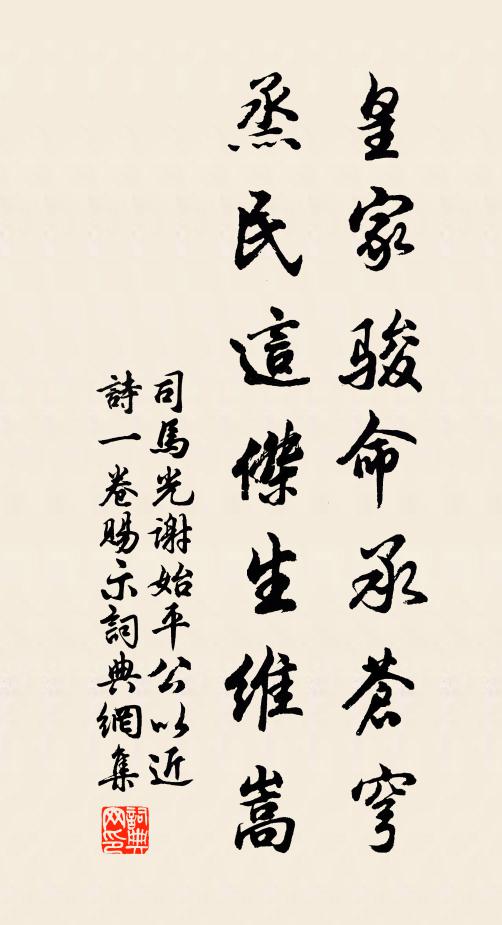 皇家骏命承蒼穹
烝民這傑生維嵩
司馬光谢始平公以近
詩一卷賜示詞典網集
詞典
网印